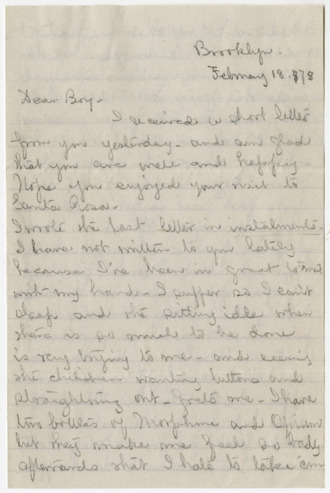 Brooklyn.
February 18. 878
Dear Boy-
I received a short letter
from you yesterday - and am glad
that you are well and happy.
Hope you enjoyed your visit to
Santa Rosa.
I wrote the last letter in instalments.
I have not written to you lately
because I've been in great
with my hand - I suffer so I can't
sleep and the sitting idle when
there is so much to be done
is very trying to me - and seeing
the children wanting buttons and
straightening out - frets me - I have
two bottles of Morphine and Opium
but they make me feel so
afterwards that I hate to take em